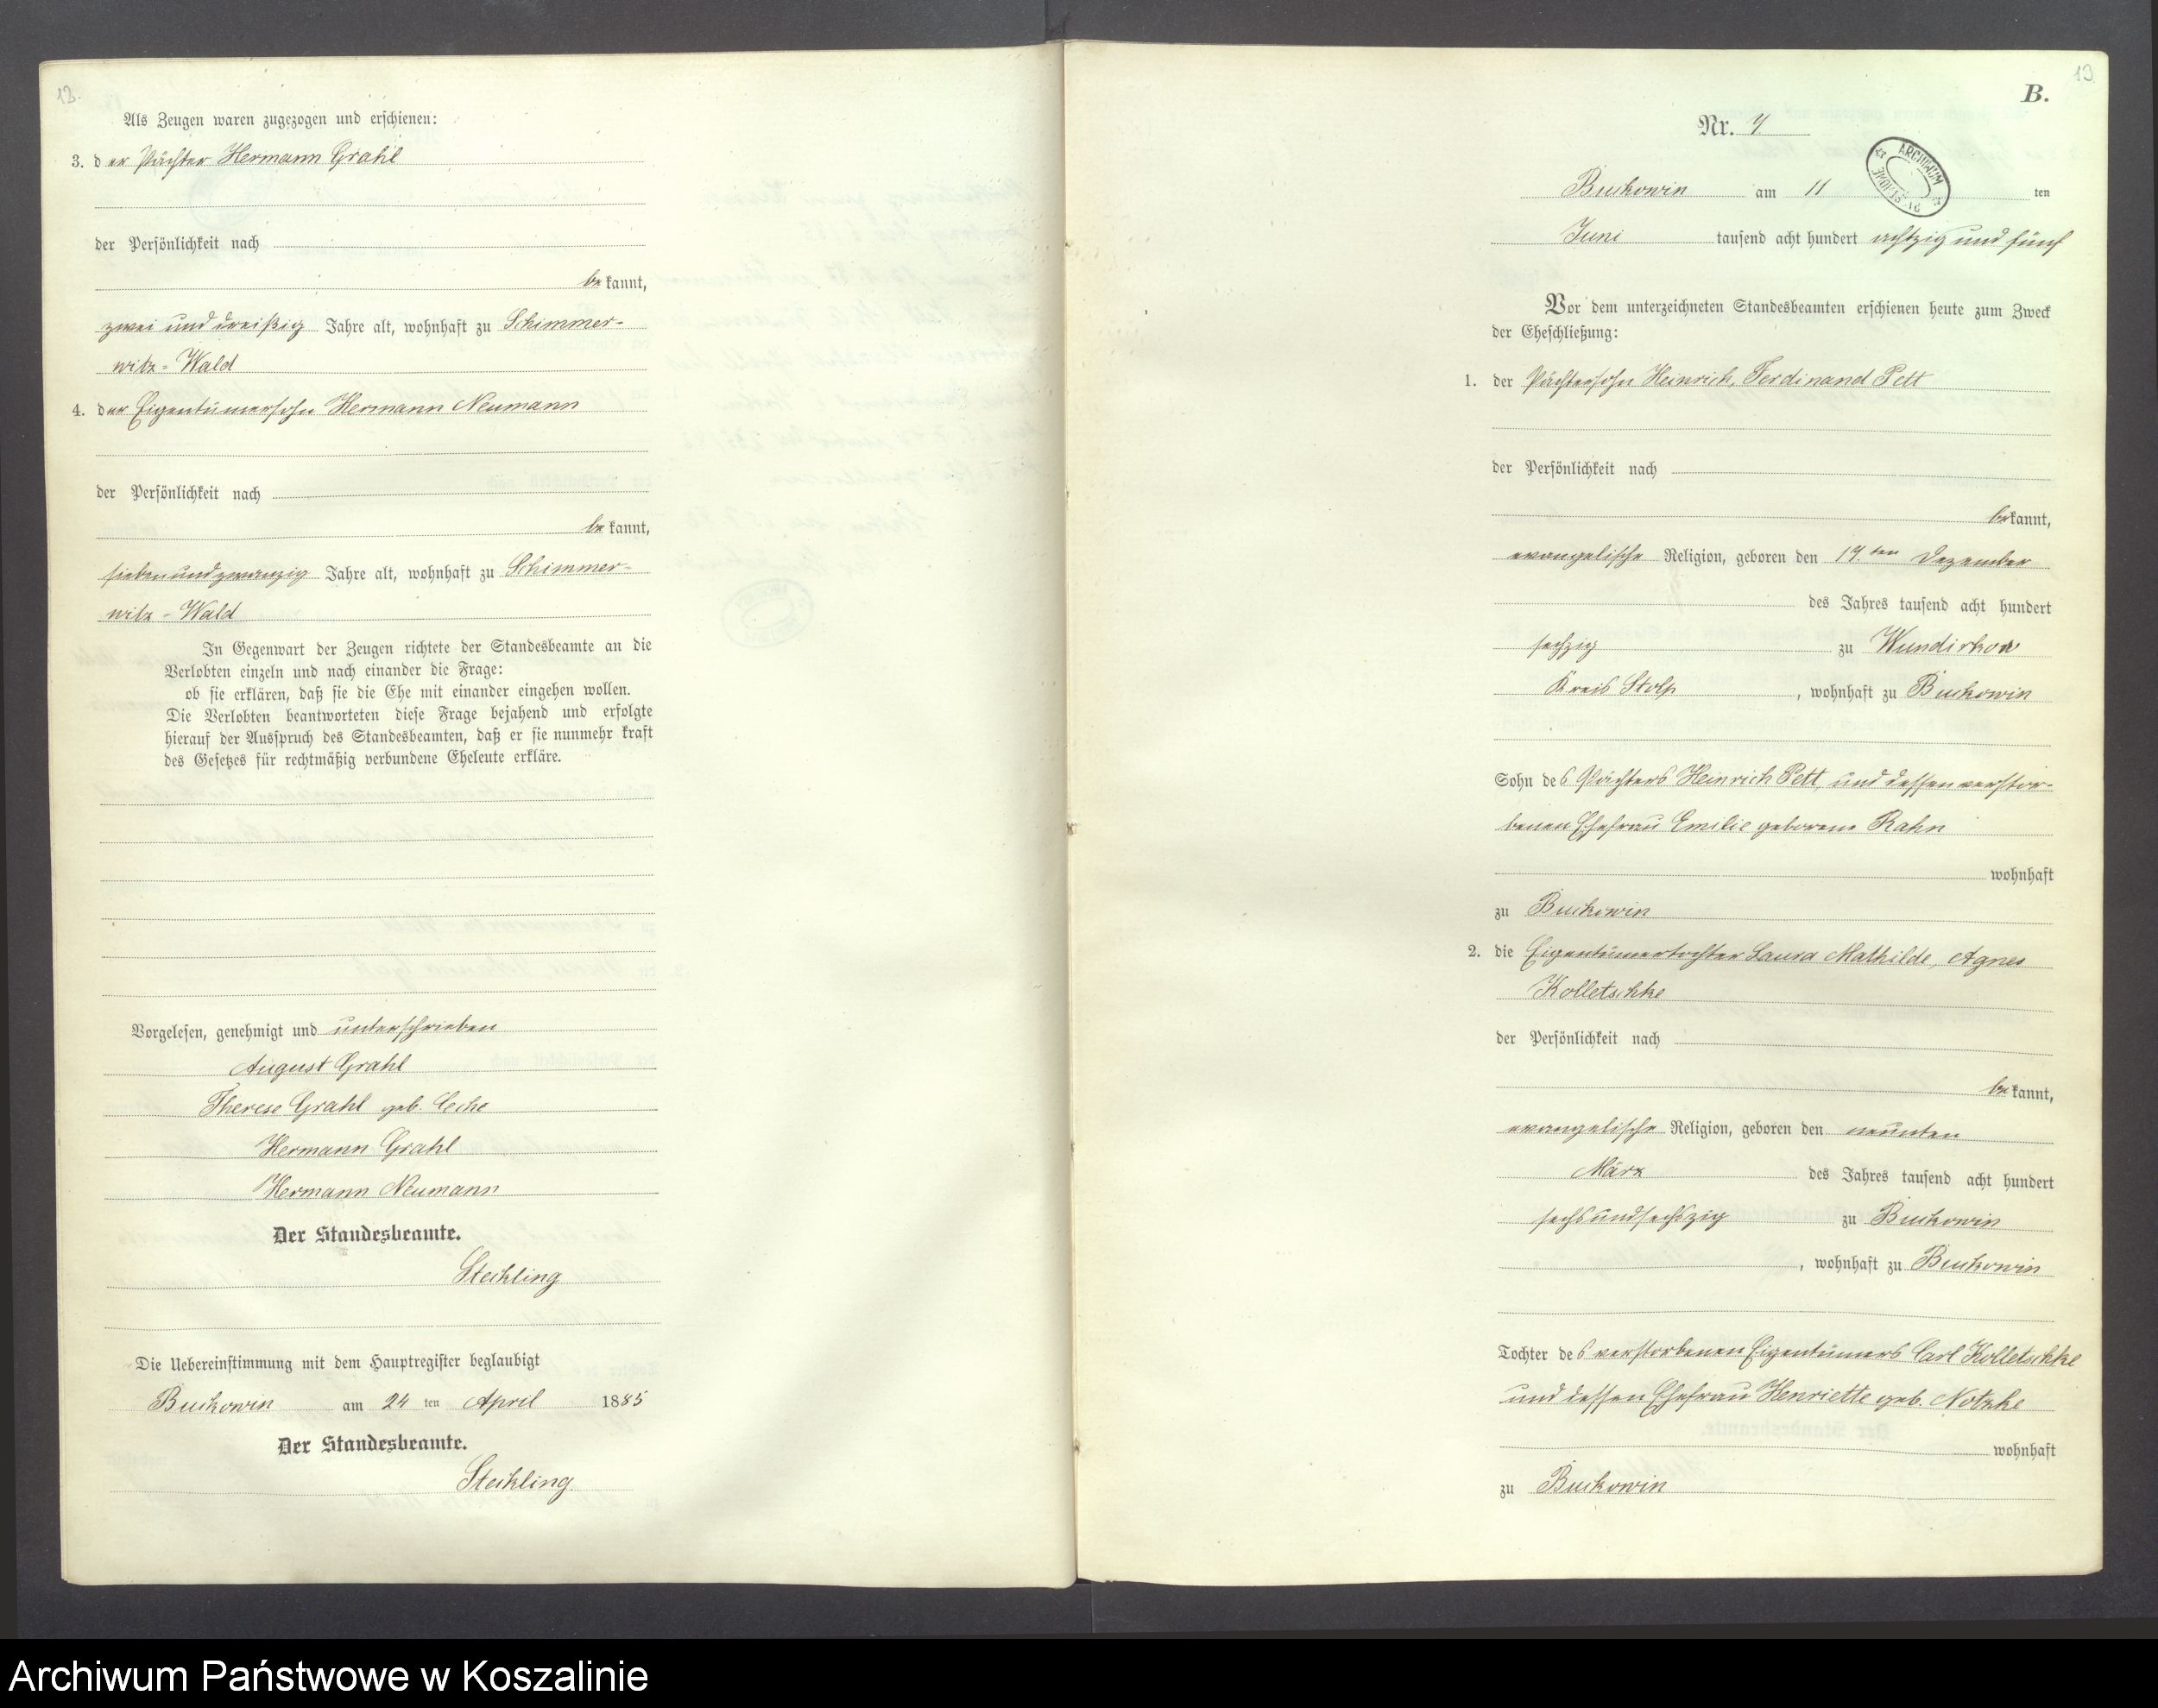 12.
Als Zeugen waren zugezogen und erschienen:
3. der Pächter Hermann Grahl
der Persönlichkeit nach
be kannt,
zwei und dreißig Jahre alt, wohnhaft zu Schimmer-
witz-Wald
4. der Eigentümersohn Hermann Neumann
der Persönlichkeit nach
be kannt,
siebenundzwanzig Jahre alt, wohnhaft zu Schimmer-
witz-Wald
In Gegenwart der Zeugen richtete der Standesbeamte an die
Verlobten einzeln und nach einander die Frage:
ob sie erklären, daß sie die Ehe mit einander eingehen wollen.
Die Verlobten beantworteten diese Frage bejahend und erfolgte
hierauf der Ausspruch des Standesbeamten, daß er sie nunmehr kraft
des Gesetzes für rechtmäßig verbundene Eheleute erkläre.
Vorgelesen, genehmigt und unterschrieben
August Grahl
Therese Grahl geb. Ceche
Hermann Grahl
Hermann Neumann
Der Standesbeamte.
Steckling
Die Uebereinstimmung mit dem Hauptregister beglaubigt
Buckowin am 24 ten April 1885
Der Standesbeamte.
Steckling
13
B.
Nr. 7
ARCHIWUM
Buckowin am 11 ten
Juni tausend acht hundert achtzig und fünf
Vor dem unterzeichneten Standesbeamten erschienen heute zum Zweck
der Eheschließung:
1. der Pächtersohn Heinrich, Ferdinand Pett
der Persönlichkeit nach
bekannt,
evangelische Religion, geboren den 17ten Dezember
des Jahres tausend acht hundert
sechzig zu Wundichow
Kreis Stolp, wohnhaft zu Buckowin
Sohn des Pächters Heinrich Pett, und dessen verstor-
benen Ehefrau Emilie geborene Rahn
wohnhaft
zu Buckowin
2. die Eigentümertochter Laura Mathilde, Agnes
Kolletschke
der Persönlichkeit nach
be kannt,
evangelische Religion, geboren den neunten
März des Jahres tausend acht hundert
sechsundsechszig zu Buckowin
, wohnhaft zu Buckowin
Tochter des verstorbenen Eigentümers Carl Kolletschke
und dessen Ehefrau Henriette geb. Notzke
wohnhaft
zu Buckowin
Archiwum Państwowe w Koszalinie